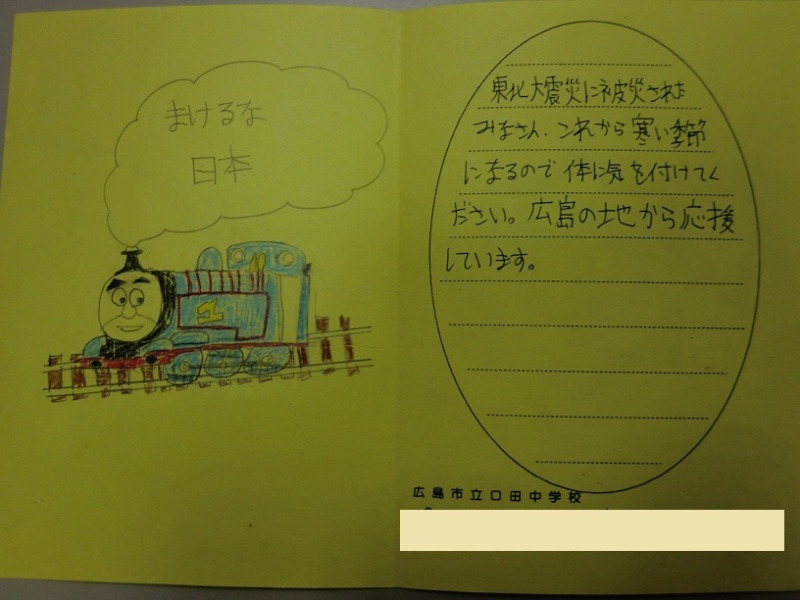 まけるな
日本
1
東北大震災に被災された
みなさん、これから寒い季節
になるので体に気を付けてく
ださい。広島の地から応援
しています。
広島市立口田中学校